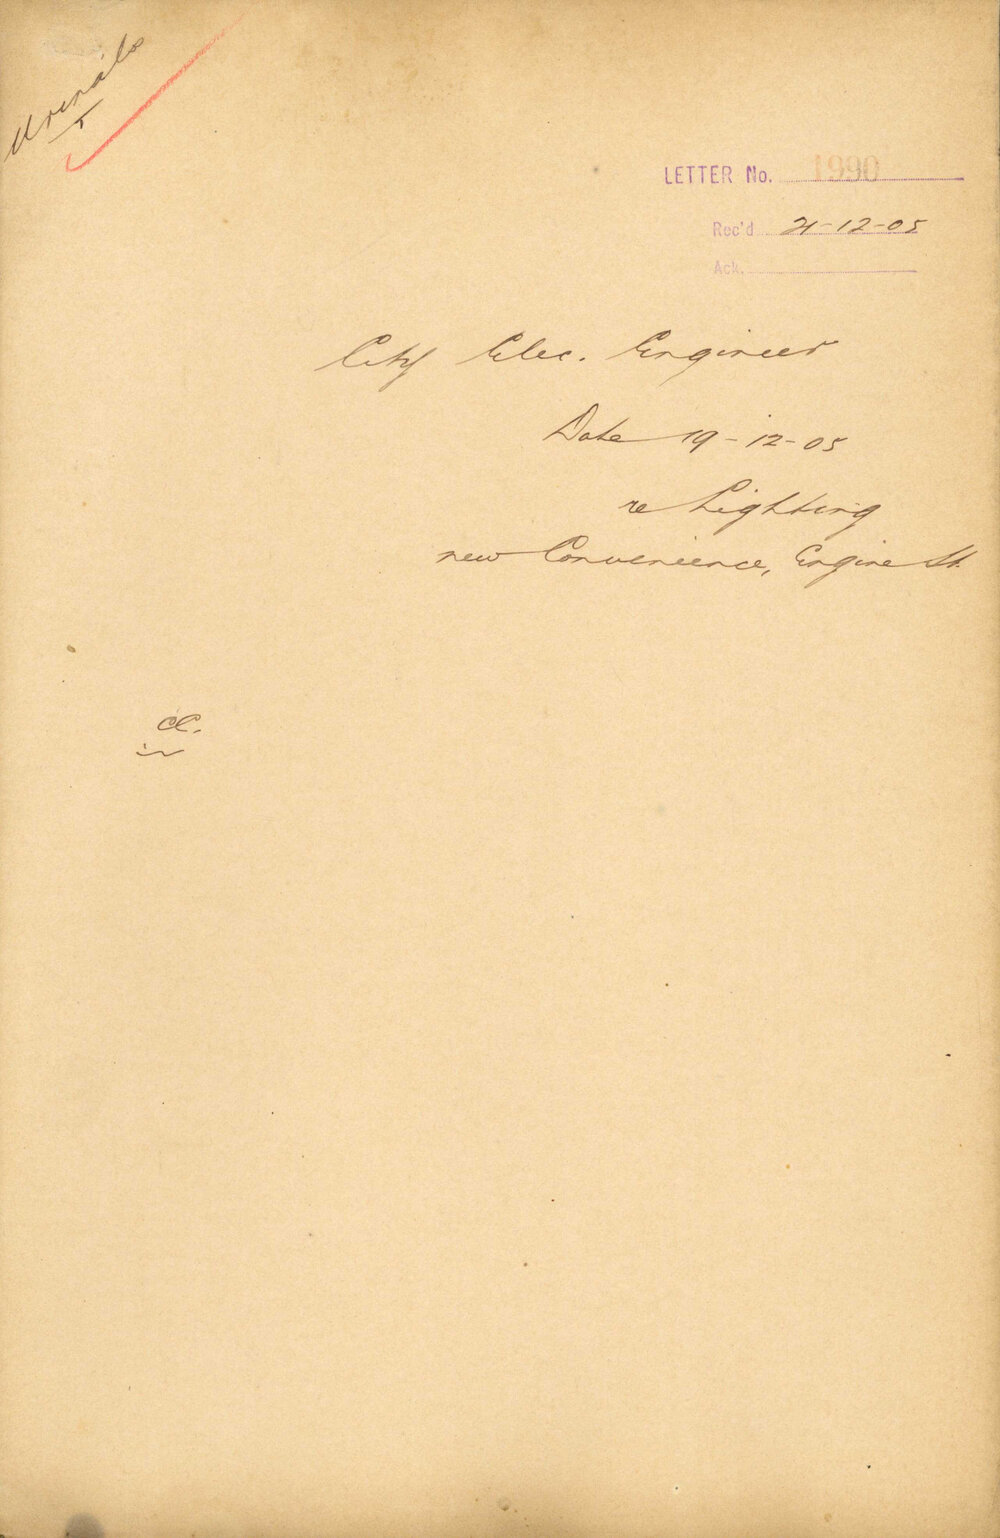 Urinals
LETTER No. 1990
Rec'd 21-12-05
Ack.
City Elec. Engineer
Date 19-12-05
re Lighting
new Convenience, Engine St.